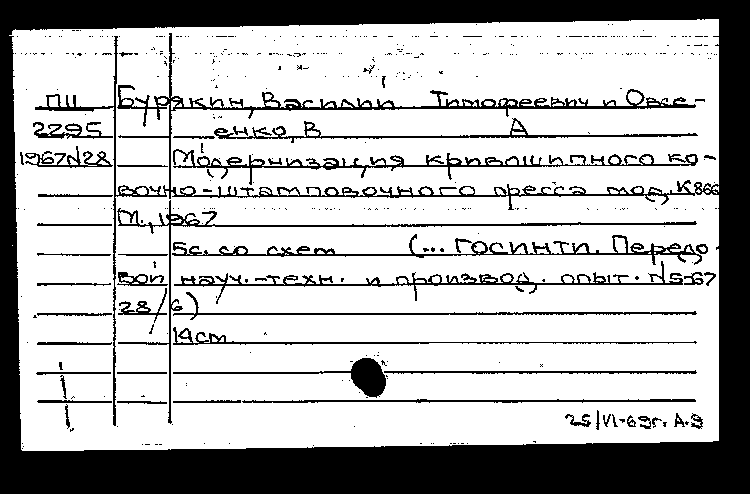 ПII Бурякин, Василий Тимофеевич и Овсе-
2295 енко, В А
1967N28 Модернизация кривошипного ко-
вочно-штамповочного пресса мод. К866
М., 1967
5с. со схем (... ГОСИНТИ. Передо
вой науч.-техн. и производ. опыт. N5-67
28/6)
14см
25/VI-69г. А.Э